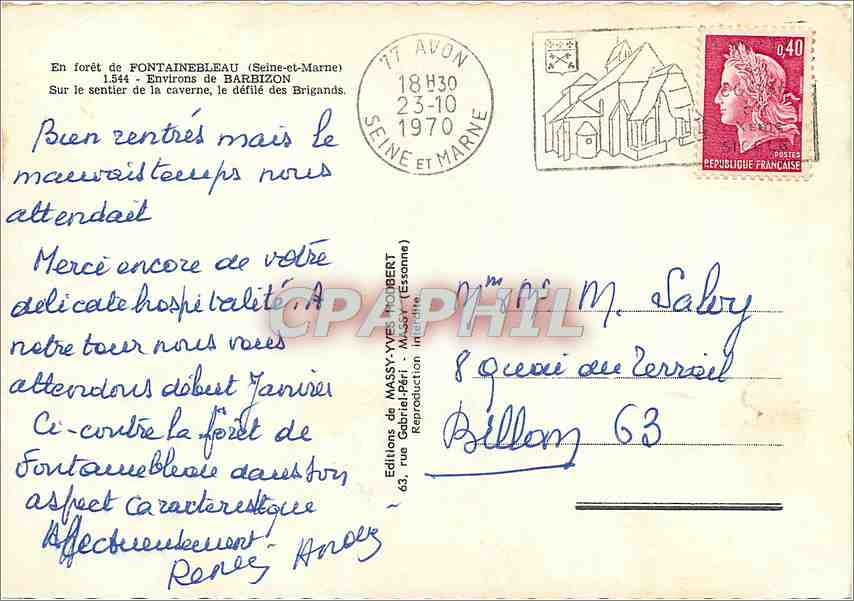 En forêt de FONTAINEBLEAU (Seine-et-Marne)
1.544 - Environs de BARBIZON
Sur le sentier de la caverne, le défilé des Brigands.
Bien rentrés mais le
mauvais temps nous
attendait
Merci encore de votre
délicate hospitalité. A
notre tour nous vous
attendons début Janvier
Ci-contre la forêt de
Fontainebleau dans son
aspect caractéristique
Affectueusement
Renée
77 AVON
18H30
23-10
1970
SEINE ET MARNE
0,40
POSTES
REPUBLIQUE FRANÇAISE
Editions de MASSY-YVES HOUBERT
63, rue Gabriel-Péri - MASSY (Essonne)
Reproduction interdite
CPAPHIL
M. Salvy
8 quai du Terrail
Billom 63